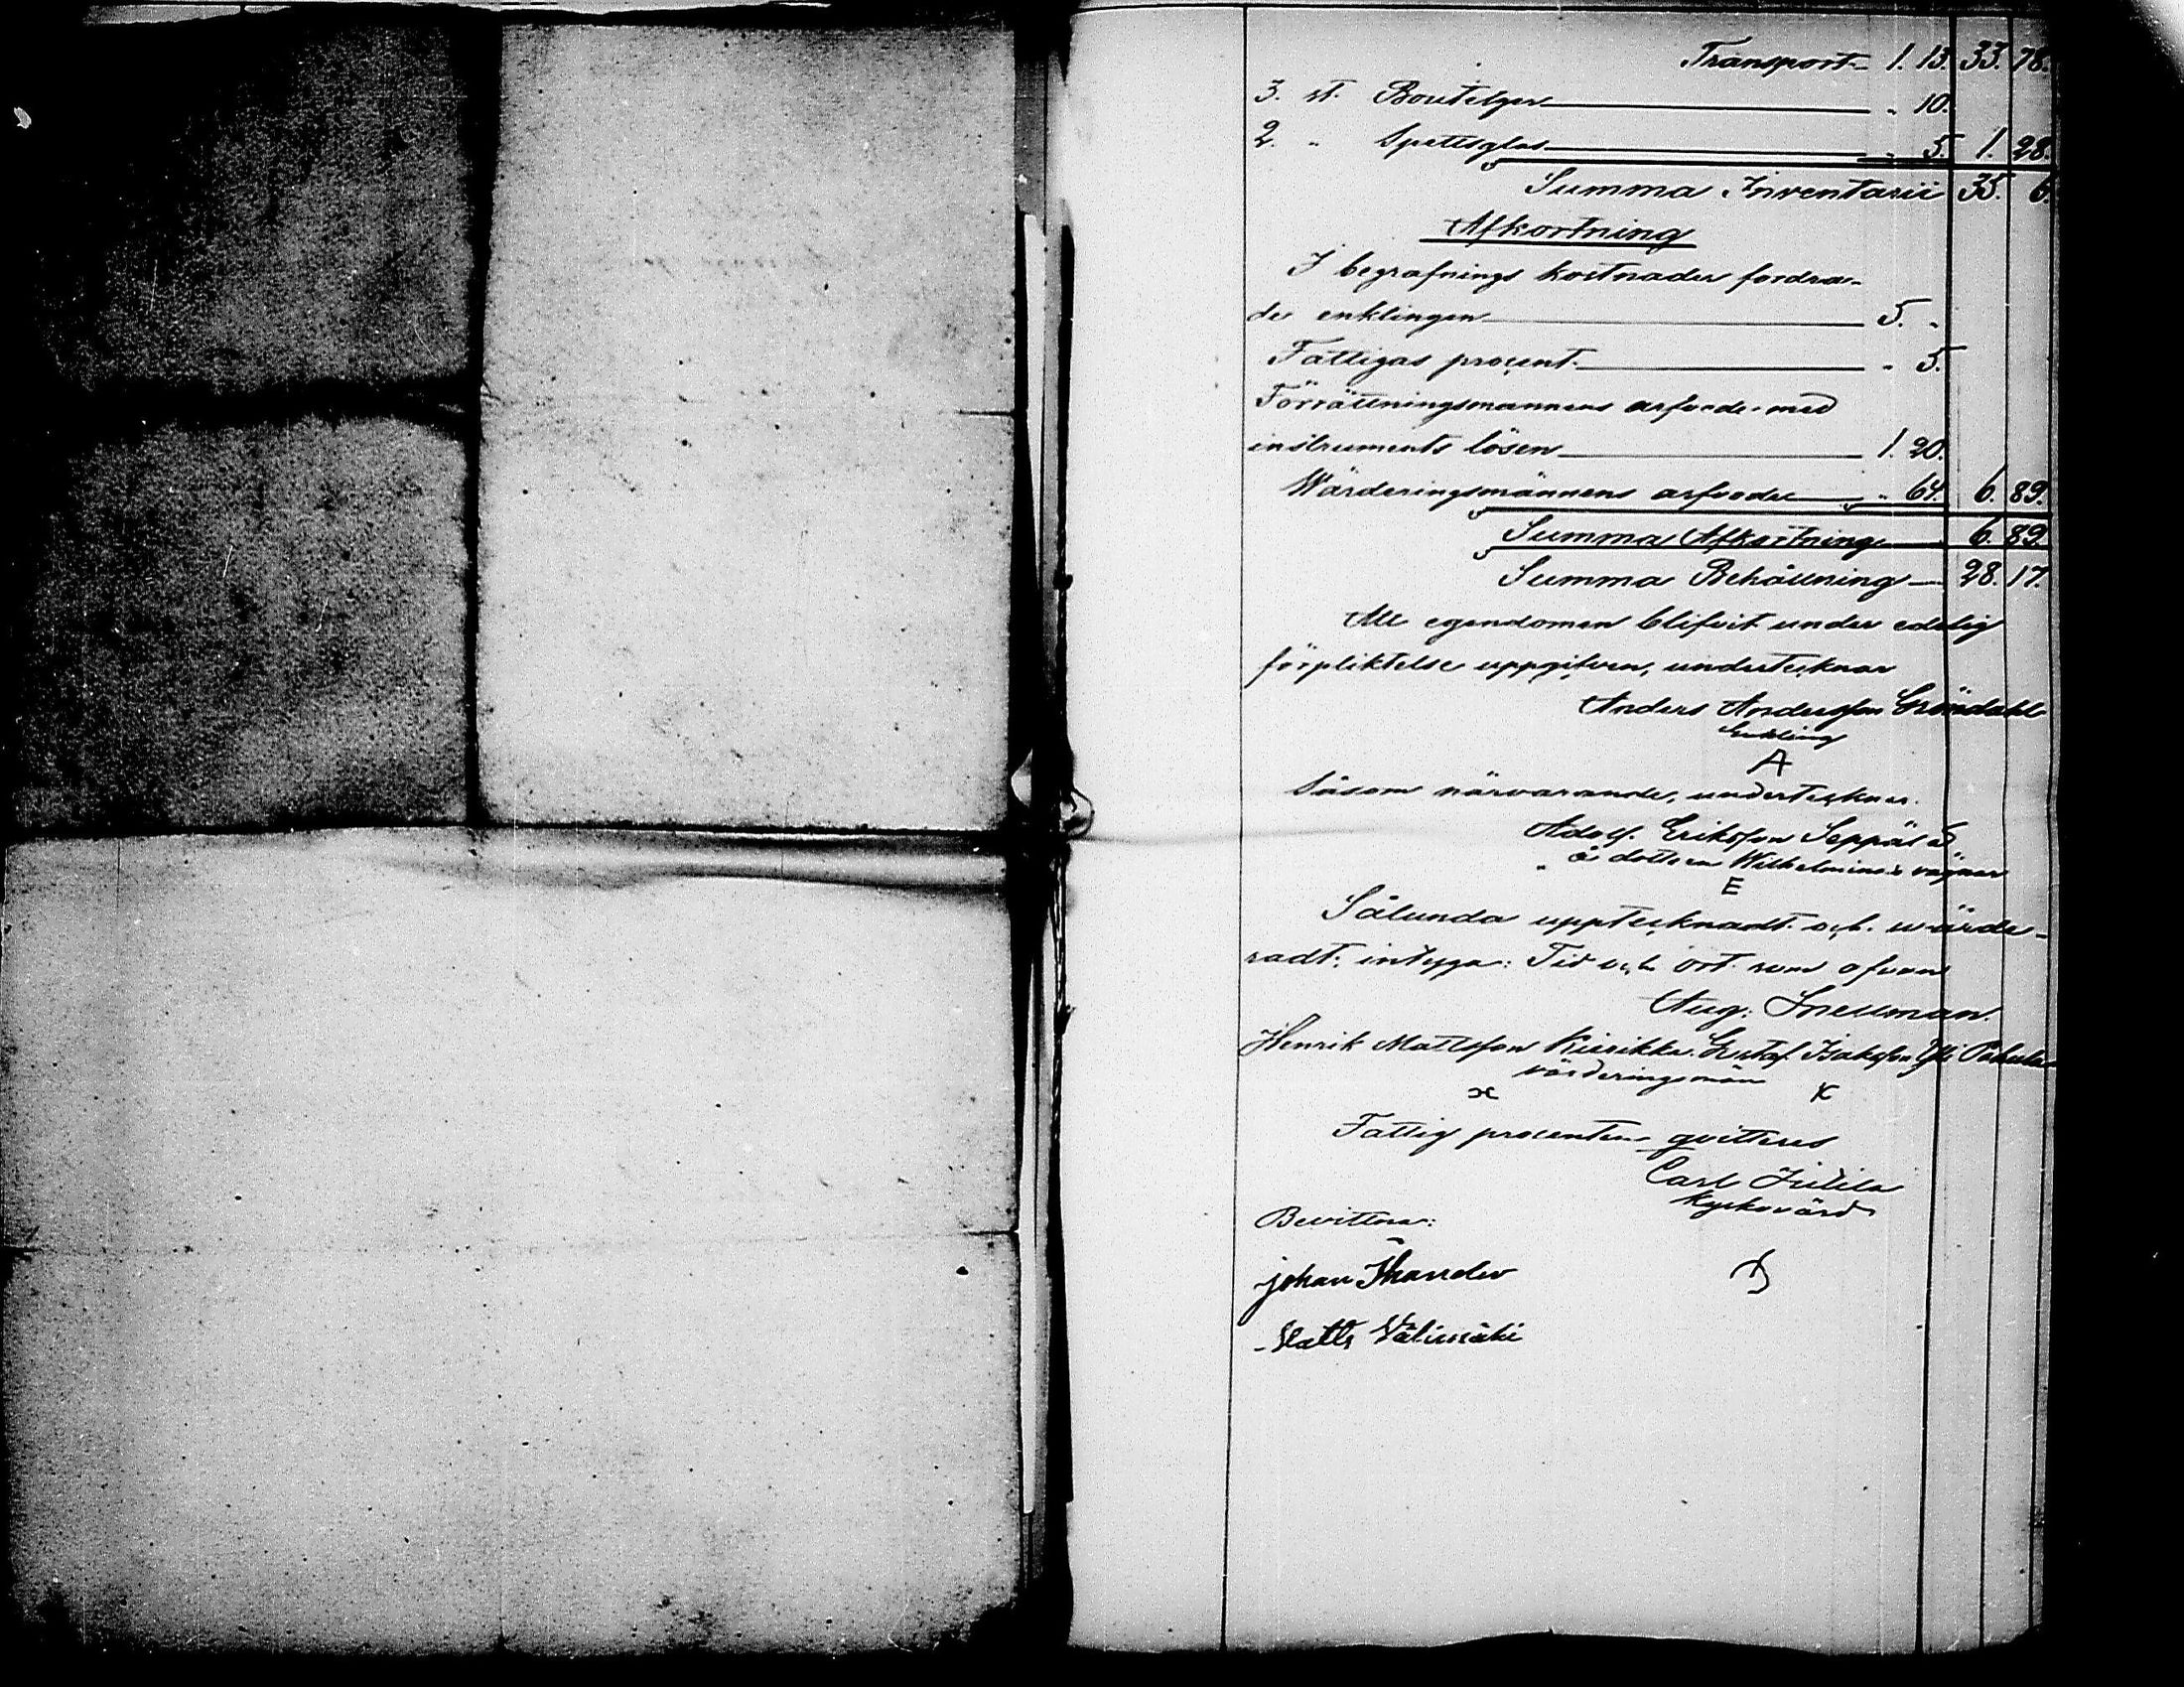 Transport 1. 13. 33. 78.
3. st. Boutelger " 10.
2. " Spettsglas " 5. 1. 28.
Summa Inventarii 35. 6.
Afkortning
I begrafnings kostnader fordra-
de enklingen 5. "
Fattigas procent " 5.
Förrättningsmannens arfvode med
instruments lösen 1. 20.
Wärderingsmännens arfvode " 64. 6. 89.
Summa Afkortning 6. 89.
Summa Behållning 28. 17.
All egendomen blifvit under edelig
förpliktelse uppgifven, undertecknar
Anders Andersson Gröndahl
Enkling
A
Såsom närvarande, undertecknar.
Adolf Eriksson Seppälä
å dottren Wilhelminas vägnar
E
Sålunda upptecknadt och wärde-
radt, intyga: Tid och ort som ofvan
Aug: Snellman.
Henrik Mattsson Kiirikka Gustaf Isaksson Yli
värderingsmän
x x
Fattig procenten qvitteras
Carl
Kyrkovärd
Bevittna:
johan Thander
Matts Välimäki